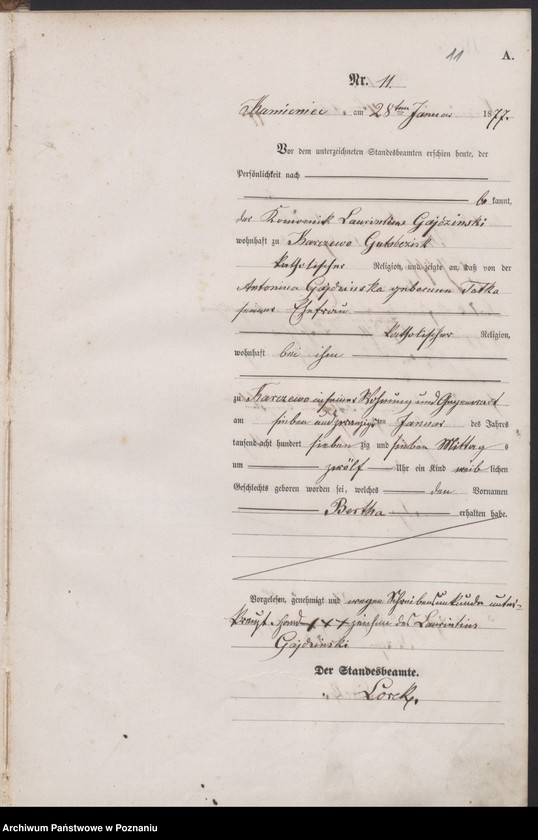 11
A.
Nr. 11.
Kamieniec, am 28ten Januar 1877.
Vor dem unterzeichneten Standesbeamten erschien heute, der
Persönlichkeit nach
be kannt,
der Komornik Laurentius Gajdzinski
wohnhaft zu Karczewo Gutsbezirk
katholischer Religion, und zeigte an, daß von der
Antonina Gajdzinska geborenen Tatka
seiner Ehefrau
katholischer Religion,
wohnhaft bei ihm
zu Karczewo in seiner Wohnung und Gegenwart
am sieben und zwanzigsten Januar des Jahres
tausend acht hundert sieben zig und sieben Mittag s
um zwölf Uhr ein Kind weib lichen
Geschlechts geboren worden sei, welches den Vornamen
Bertha erhalten habe.
Vorgelesen, genehmigt und wegen Schreibensunkunde unter-
kreuzt. Hand +++ zeichen des Laurentius
Gajdzinski
Der Standesbeamte.
Lorck.
Archiwum Państwowe w Poznaniu